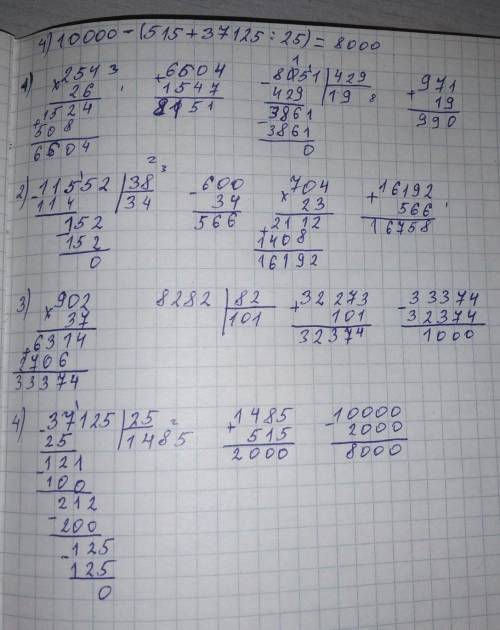 4) 10000 - (515 + 37125 : 25) = 8000
1) × 254 3
26
+ 1524
508
6604
+ 6604
1547
8151
- 8151 | 429
429 | 19
- 3861
3861
0
+ 971
19
990
2) 11552 | 38
114 | 34
- 152
152
0
- 600
34
566
× 704
23
+ 2112
1408
16192
+ 16192
566
16758
3) × 902
37
+ 6314
2706
33374
8282 | 82
101
+ 32273
101
32374
- 33374
32374
1000
4) - 37125 | 25
25 | 1485
- 121
100
212
- 200
- 125
125
0
+ 1485
515
2000
- 10000
2000
8000